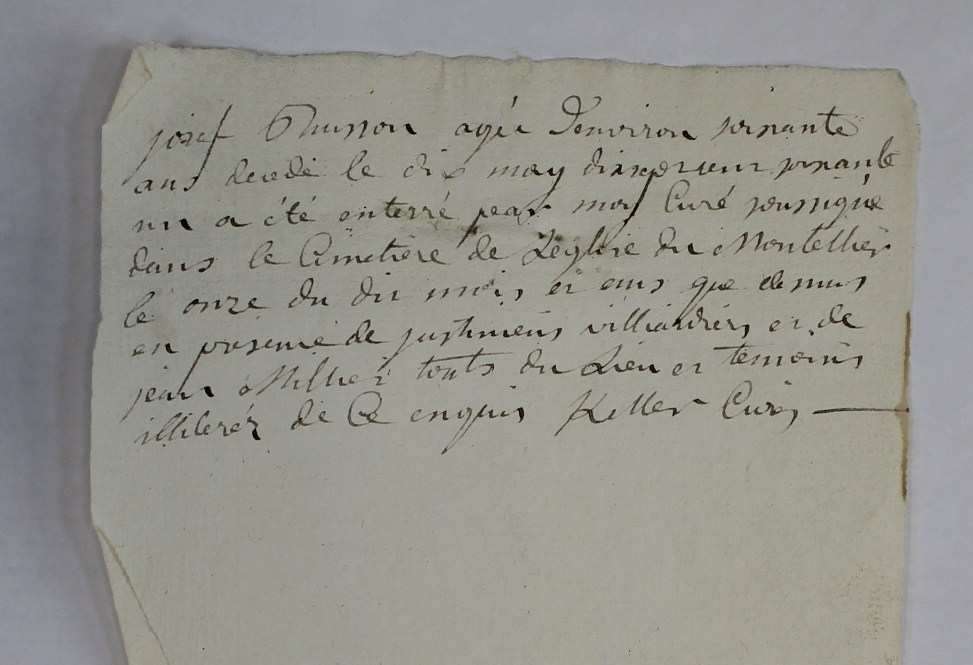 josef Buisson agée d'environ soixante
ans decedé le dix may dix sept cent soixante
un a été enterré par moy Curé soussigné
dans le Cimetière de L'eglise du Montellier
le onze du dit mois et ans que dessus
en presence de villiardier et de
jean Millier touts du Lieu et temoins
illiterés de Ce enquis Keller Curé